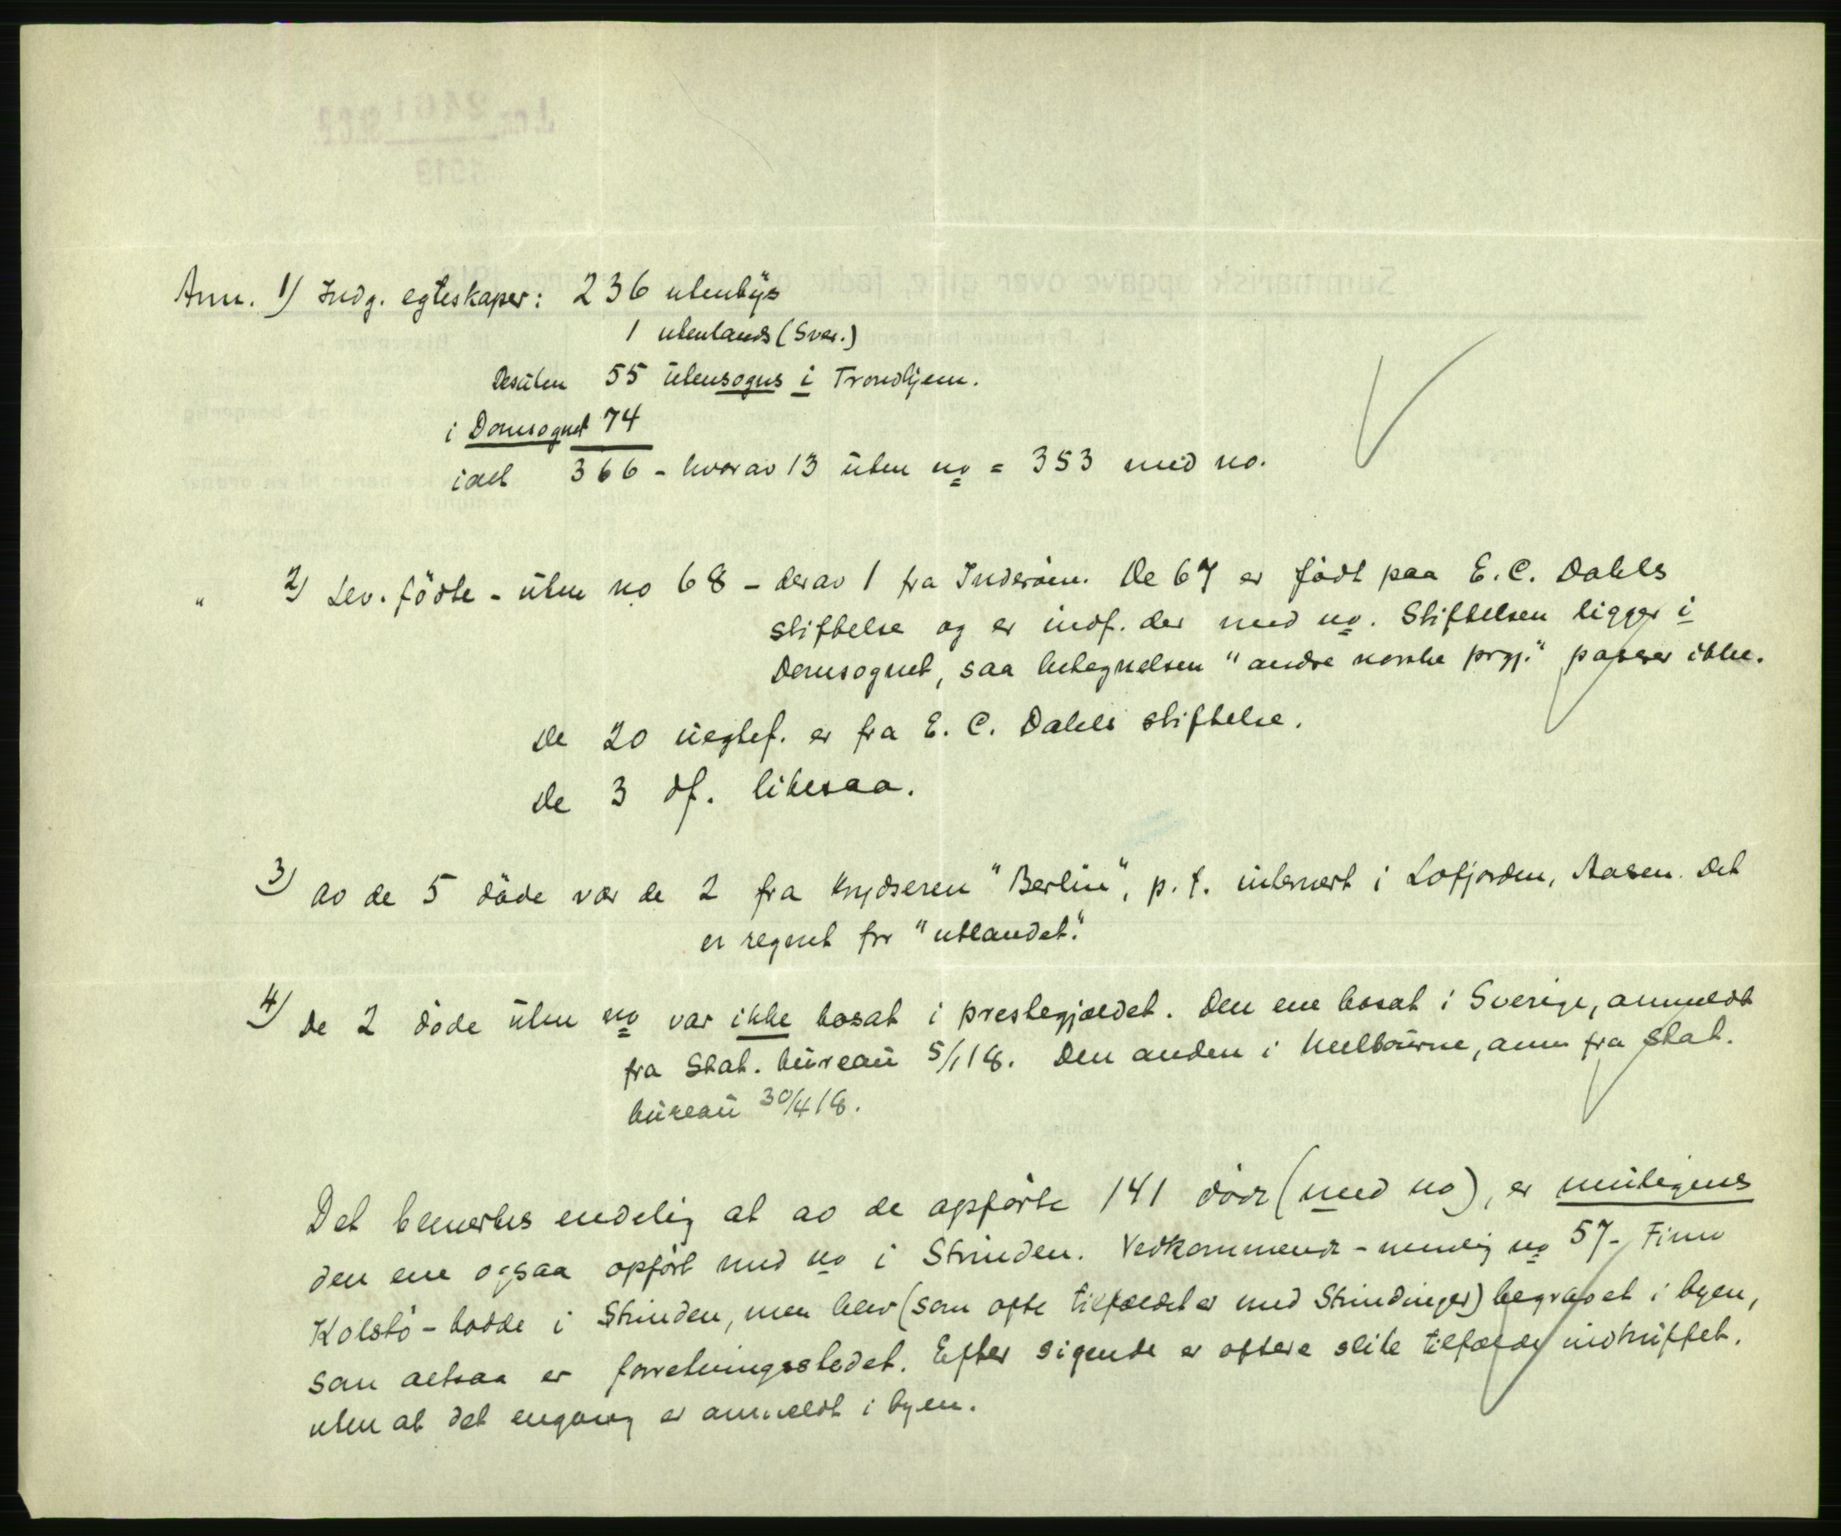 Anm. 1) Indg. egteskaper: 236 utenbys
1 utenlands (Sver.)
Desuten 55 utensogns i Trondhjem.
i Domsognet 74
ialt 366 - hvorav 13 uten no = 353 med no.
" 2) Lev. fødte - uten no 68 - derav 1 fra Inderøen. De 67 er født paa E. C. Dahls
stiftelse og er indf. der med no. Stiftelsen ligger i
Domsognet, saa betegnelsen "andre norske prgj." passer ikke.
De 20 uegtef. er fra E. C. Dahls stiftelse.
De 3 df. likesaa.
3) av de 5 døde var de 2 fra krydseren "Berlin", p. t. internert i Lofjorden, Aasen. Det
er regnet for "utlandet".
4) De 2 døde uten no var ikke bosat i prestegjældet. Den ene bosat i Sverige, anmeldt
fra Stat. bureau 5/1 18. Den anden i Melbourne, anm fra Stat.
bureau 30/4 18.
Det bemerkes endelig at av de opførte 141 døde (med no), er muligens
den ene ogsaa opført med no i Strinden. Vedkommende - nemlig no 57 - Finn
Kolstø - bodde i Strinden, men blev (som ofte tilfældet er med Strindinger) begravet i byen,
som altsaa er forretningsstedet. Efter sigende er oftere slike tilfælde indtruffet.
uten at det engang er anmeldt i byen.